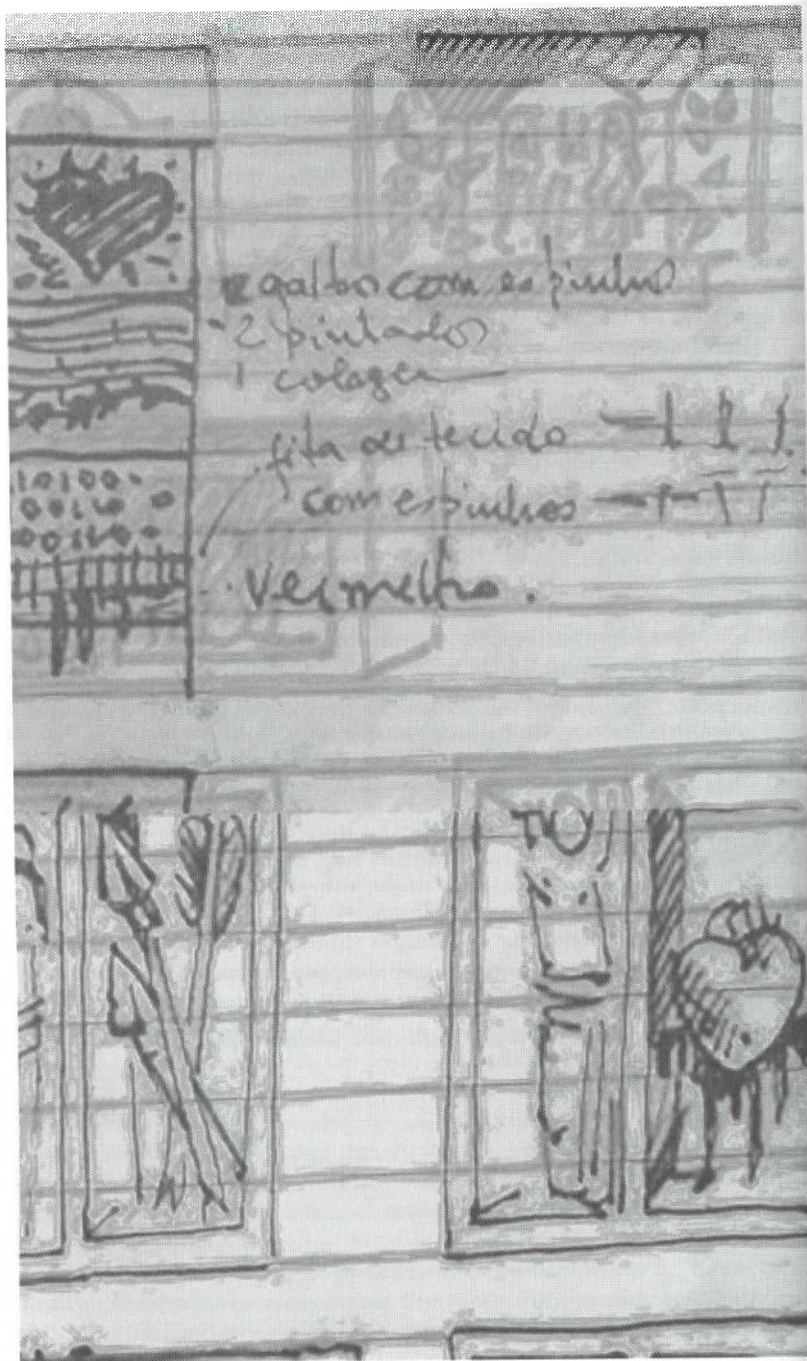 galhos com espinhos
2 pintados
1 colagem
fita de tecido
com espinhos
vermelho.